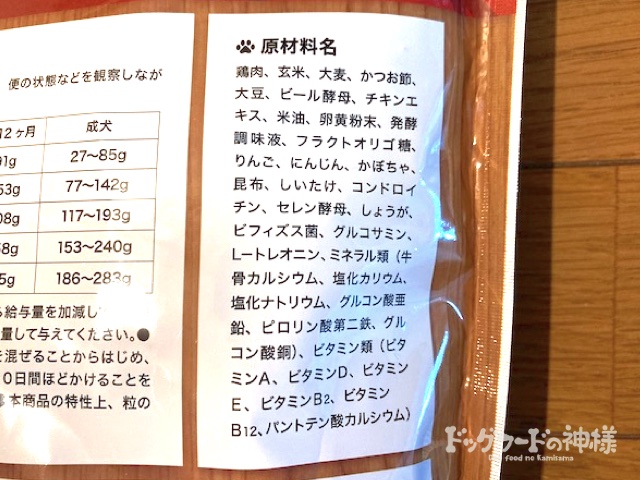 便の状態などを観察しなが
12ヶ月 成犬
91g 27〜85g
53g 77〜142g
08g 117〜193g
58g 153〜240g
5g 186〜283g
給与量を加減し
量して与えてください。●
を混ぜることからはじめ、
0日間ほどかけることを
本商品の特性上、粒の
原材料名
鶏肉、玄米、大麦、かつお節、
大豆、ビール酵母、チキンエ
キス、米油、卵黄粉末、発酵
調味液、フラクトオリゴ糖、
りんご、にんじん、かぼちゃ、
昆布、しいたけ、コンドロイ
チン、セレン酵母、しょうが、
ビフィズス菌、グルコサミン、
L-トレオニン、ミネラル類（牛
骨カルシウム、塩化カリウム、
塩化ナトリウム、グルコン酸亜
鉛、ピロリン酸第二鉄、グル
コン酸銅）、ビタミン類（ビタ
ミンA、ビタミンD、ビタミン
E、ビタミンB2、ビタミン
B12、パントテン酸カルシウム）
ドッグフードの神様
Dog food no Kamisama